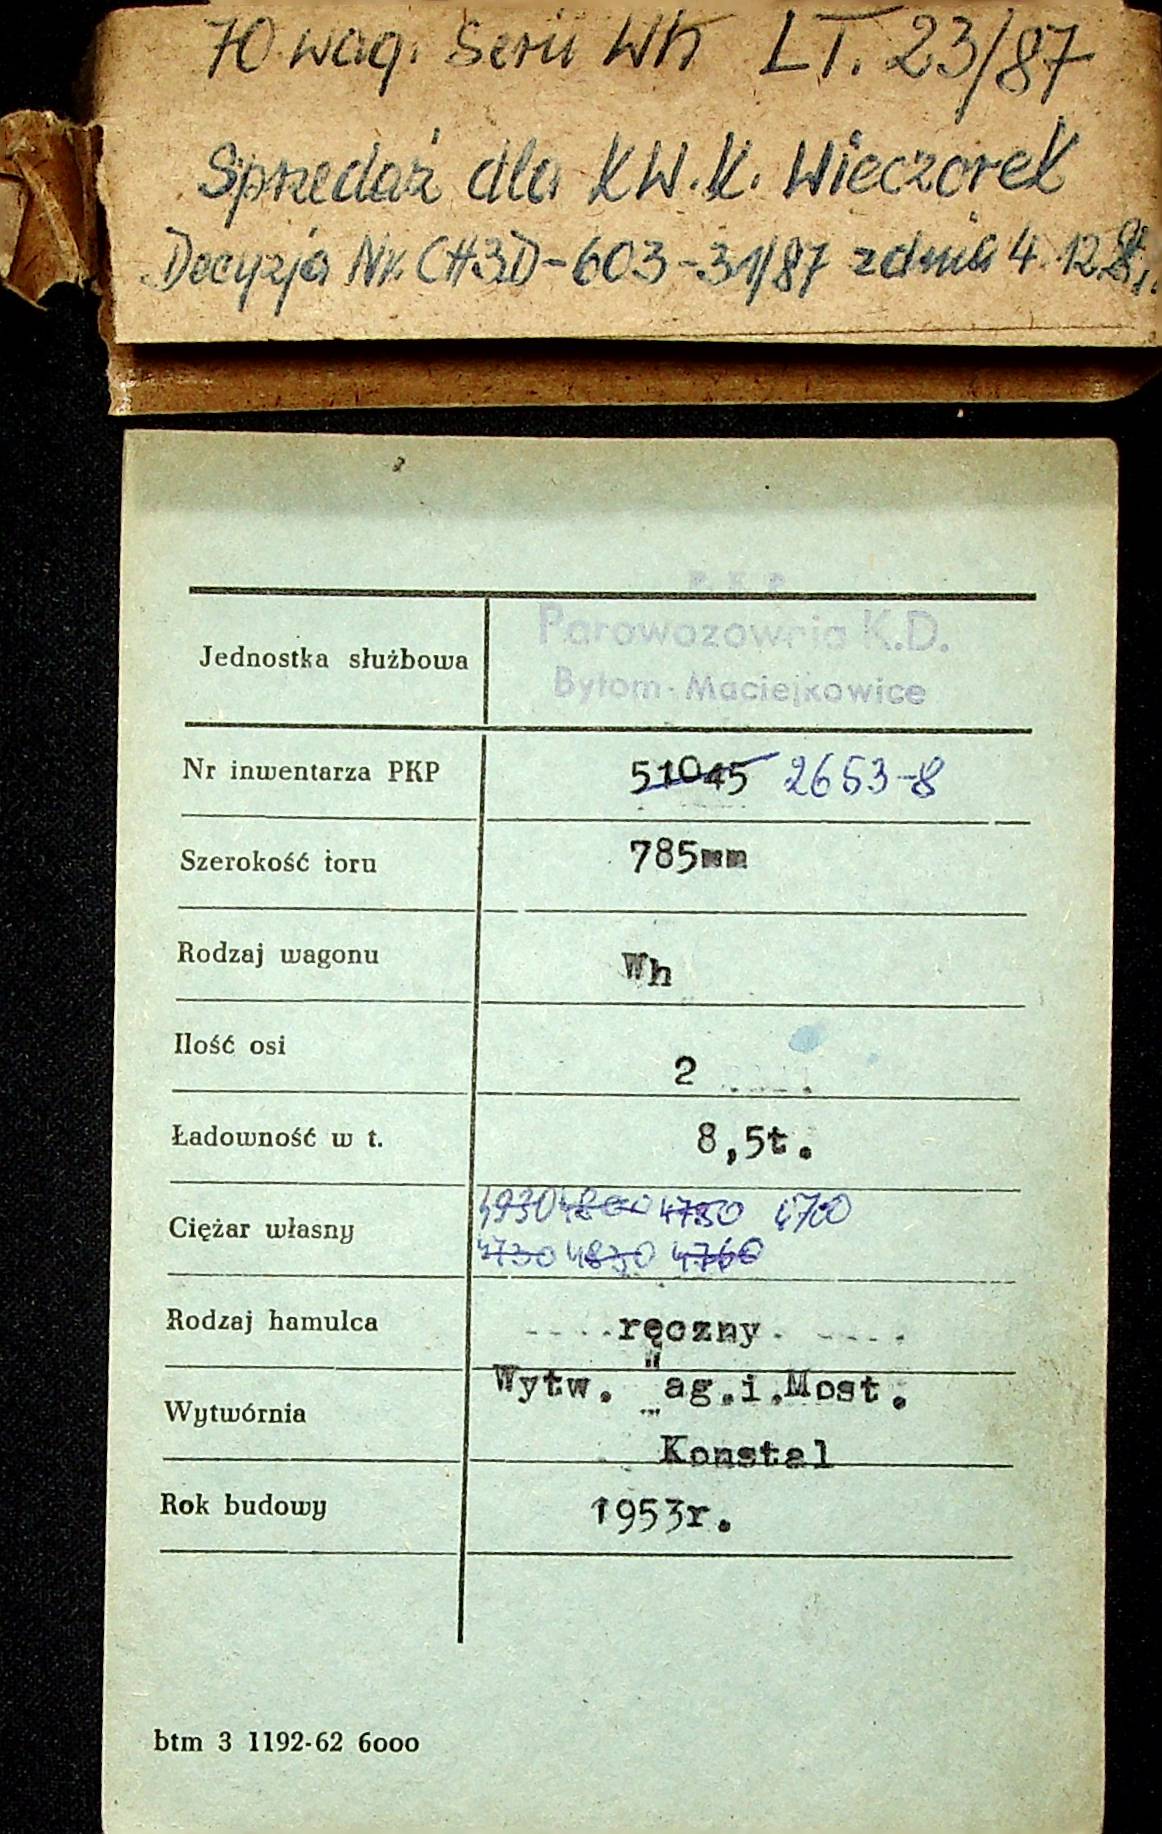 70 wag. Serii Wh LT. 23/87
Sprzedaż dla KW.K. Wieczorek
Decyzja Nr. CH3D-603-31/87 z dnia 4.12.
P K P
Parowozownia K.D.
Jednostka służbowa
Bytom-Maciejkowice
Nr inwentarza PKP 51045 2653-8
Szerokość toru 785mm
Rodzaj wagonu Wh
Ilość osi 2
Ładowność w t. 8,5t.
4930 4800 4780 4700
Ciężar własny
4730 4830 4760
Rodzaj hamulca ręczny
Wytw. "ag.i.Most.
Wytwórnia
Konstal
Rok budowy 1953r.
btm 3 1192-62 6000